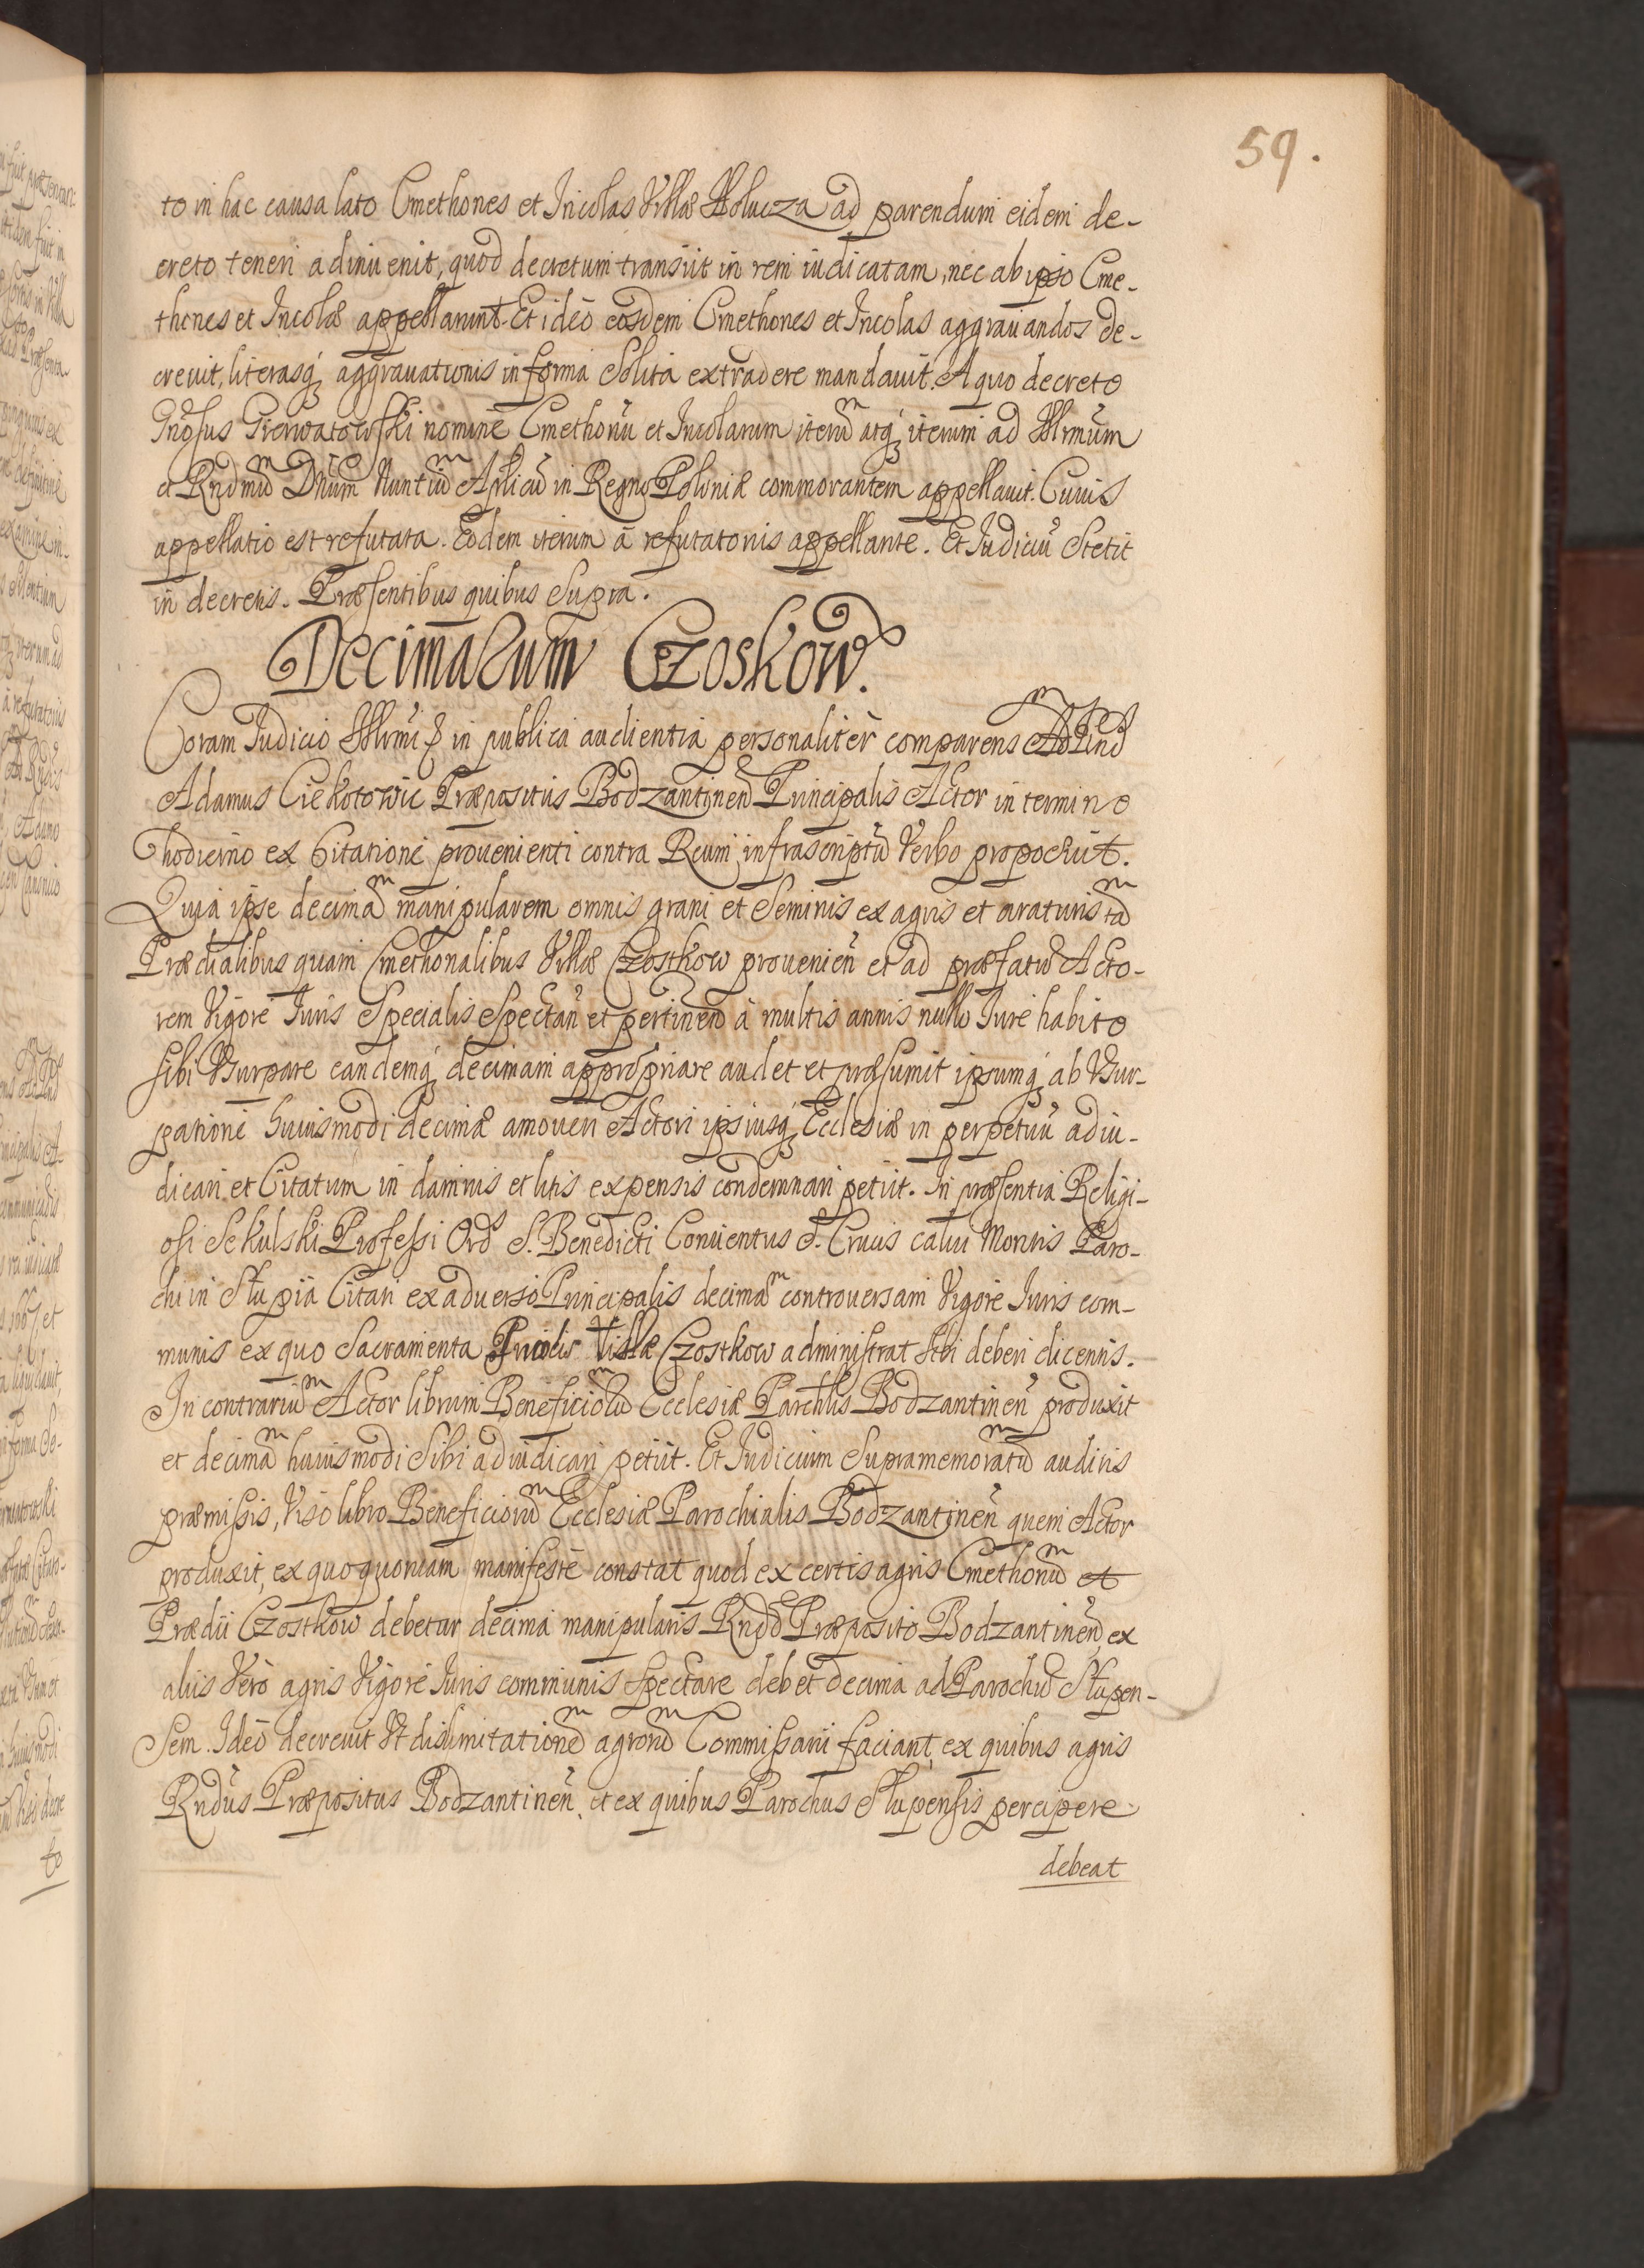 59.
to in hac causa lato Cmethones et Incolas Villæ Hołucza ad parendum eidem de-
creto teneri adinuenit, quod decretum transiit in rem iudicatam, nec ab ipso Cme-
thones et Incolæ appellarunt. Et ideò eosdem Cmethones et Incolas aggrauandos de-
creuit, literasq; aggrauationis in forma solita extradere mandauit. A quo decreto
nomine Cmethonũ et Incolarum iterũ atq; iterum ad Illrmũm
et Rndmũ Dñum Nuntiũ Aplicũ in Regno Poloniæ commorantem appellauit. Cuius
appellatio est refutata. Eodem iterum à refutatonis appellante. Et Iudiciũ stetit
in decretis. Præsentibus quibus supra.
Decimarum Czoskow.
Coram Iudicio Illrmi & in publica audientia personalitèr comparens
Adamus Ciekotowic Præpositus Bodzantinen̄ Principalis Actor in termino
hodierno ex Citatione prouenienti contra Reum infrascriptũ Verbo proposuit.
Quia ipse decimã manipularem omnis grani et seminis ex agris et araturis tã
Prædialibus quam Cmethonalibus Villæ Czostkow prouenien̄ et ad præfatũ Acto-
rem Vigore Iuris Specialis Spectan̄ et pertinen̄ à multis annis nullo Iure habito
sibi Vsurpare eandemq; decimam appropriare audet et præsumit ipsumq; ab Vsur-
patione huiusmodi decimæ amoueri Actori ipsiusq; Ecclesiæ in perpetuũ adiu-
dicari et Citatum in damnis et litis expensis condemnari petiit. In præsentia Religi-
osi Sekulski Professi Ord S. Benedicti Conuentus S. Crucis calui Montis Paro-
chi in Slupia Citati ex aduerso Principalis decimã controuersam Vigore Iuris com-
munis ex quo Sacramenta Incolis Villæ Czostkow administrat sibi deberi dicentis.
In contrariũ Actor librum Beneficiorũ Ecclesiæ Parchlis Bodzantinen̄ produxit
et decimã huiusmodi sibi adiudicari petiit. Et Iudicium supramemoratũ auditis
præmissis, Viso libro Beneficiorũ Ecclesiæ Parochialis Bodzantinen̄ quem Actor
produxit, ex quo quoniam manifestè constat quod ex certis agris Cmethonũ et
Prædii Czostkow debetur decima manipularis Rndo Præposito Bodzantinen̄, ex
aliis Verò agris Vigore Iuris communis spectare debet decima ad Parochũ Slupen-
sem. Ideò decreuit Vt dislimitationẽ agrorũ Commissarii faciant, ex quibus agris
Rndus Præpositus Bodzantinen̄, et ex quibus Parochus Slupensis percipere
debeat